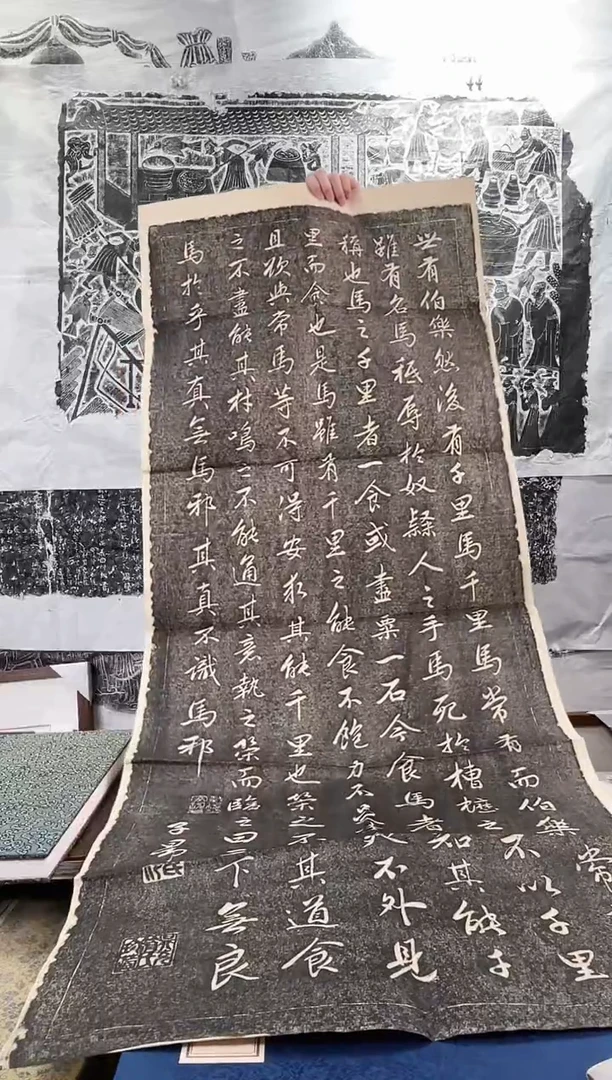 世有伯樂然後有千里馬千里馬常有而伯樂常
雖有名馬祇辱於奴隸人之手馬死於槽櫪之不以千里
稱也馬之千里者一食或盡粟一石今食馬者知其能千
里而食也是馬雖有千里之能食不飽力不足美不外見
且欲與常馬等不可得安求其能千里也策之不其道食
之不盡能其材鳴之不能通其意執之策而臨之曰天下無良
馬於乎其真無馬邪其真不識馬邪
子昂